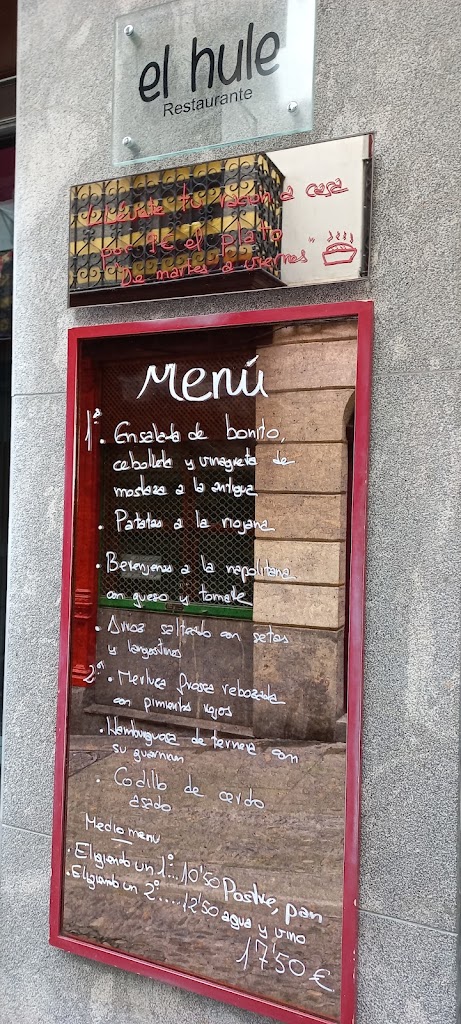 el hule
Restaurante
Llévate tu ración a casa
por 9€ el plato
"De martes a viernes"
Menú
1ª • Ensalada de bonito,
cebolleta y vinagreta de
mostaza a la antigua
• Patatas a la riojana
• Berenjenas a la napolitana
con queso y tomate
• Arroz salteado con setas
y langostinos
2ª • Merluza fresca rebozada
con pimientos rojos
• Hamburguesa de ternera con
su guarnición
• Codillo de cerdo
asado
Medio menu
• Eligiendo un 1º... 10'50
• Eligiendo un 2º..... 12'50
Postre, pan
agua y vino
17'50 €